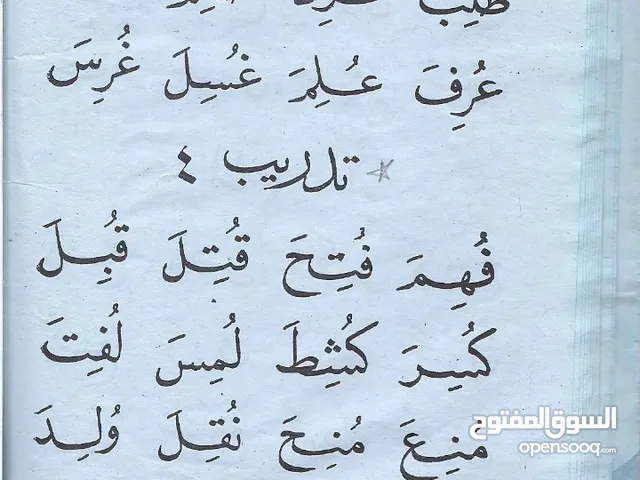 عُرِفَ عُلِمَ غُسِلَ غُرِسَ
* تدريب ٤
فُهِمَ فُتِحَ قُتِلَ قُبِلَ
كُسِرَ كُشِطَ لُمِسَ لُفِتَ
مُنِعَ مُنِحَ نُقِلَ وُلِدَ
السوق المفتوح
opensooq.com